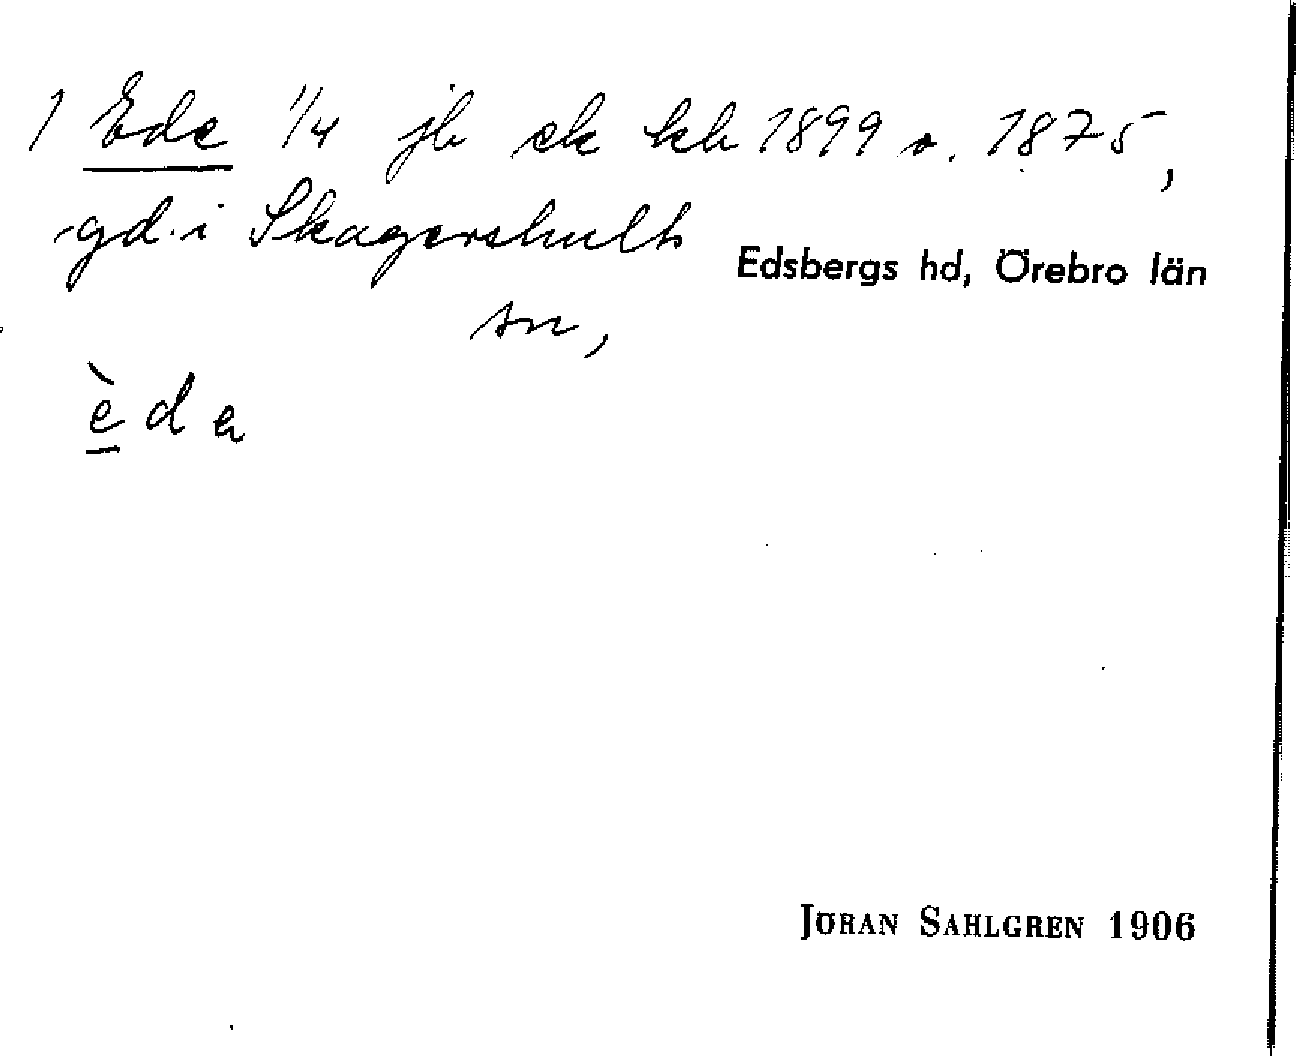 1 Ede 1/4 jb ek kb 1899 o. 1875,
gd. i Skagershults
Edsbergs hd, Örebro län
sn,
è d e
JÖRAN SAHLGREN 1906